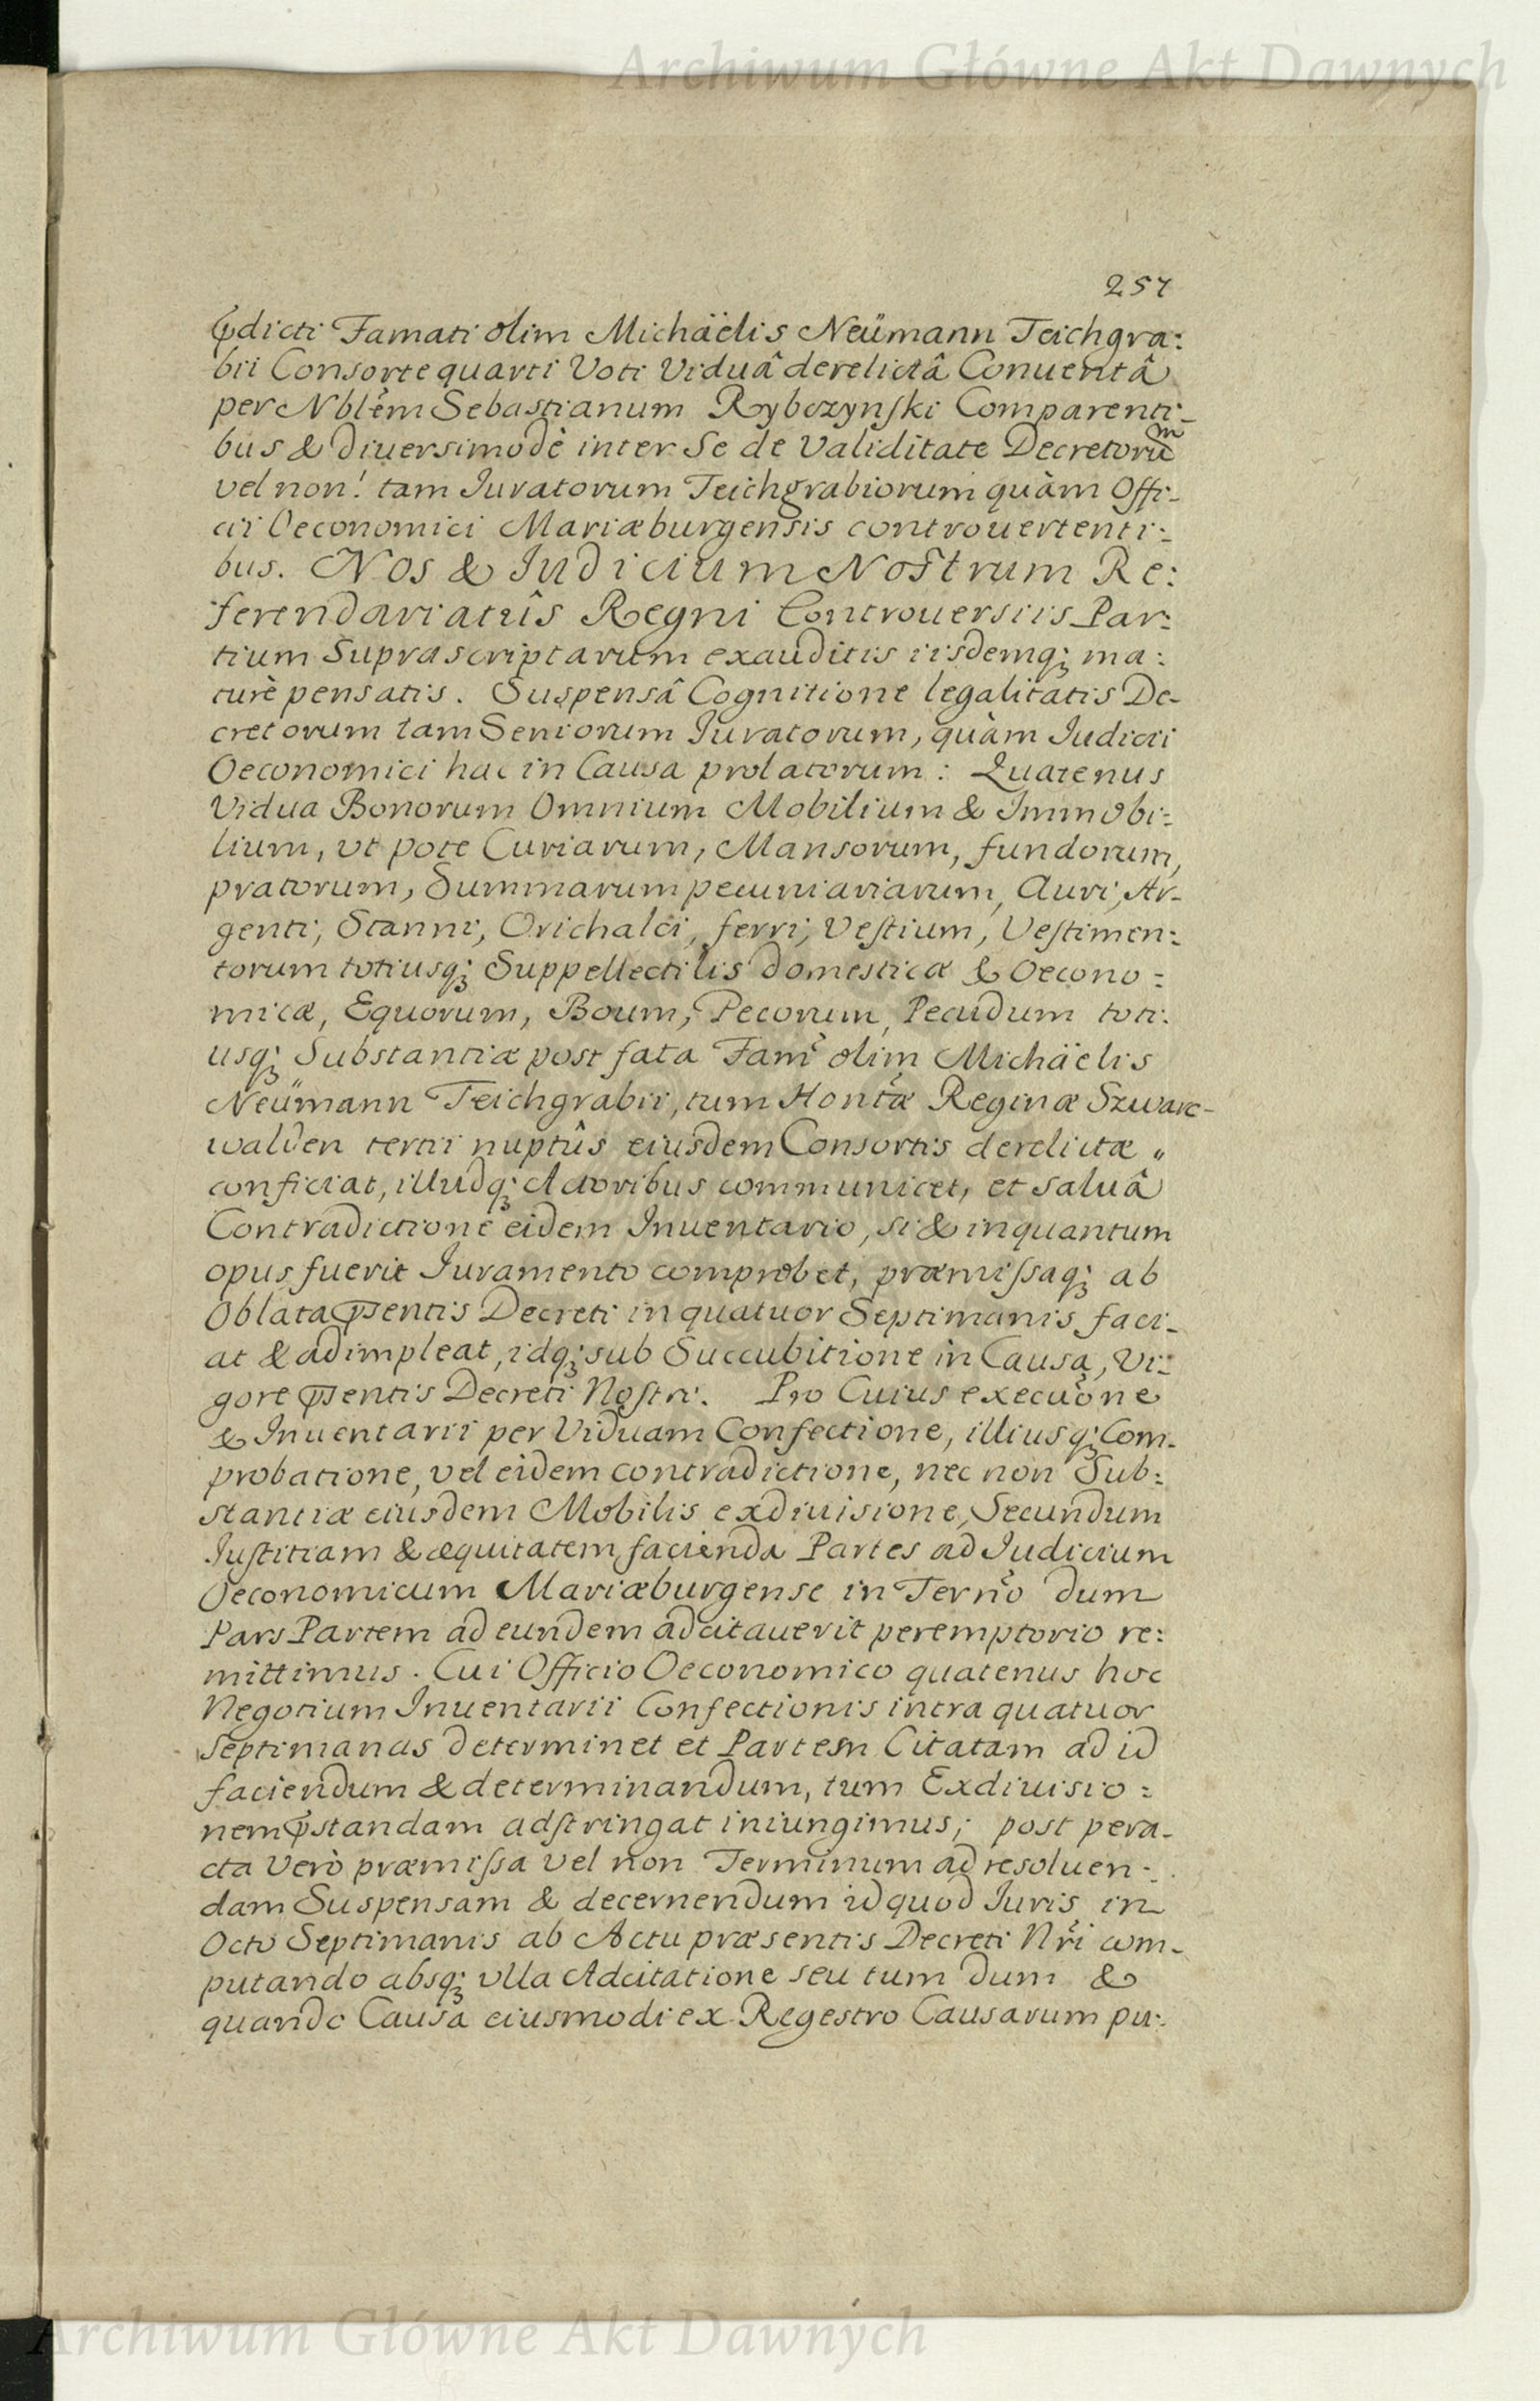 Archiwum Główne Akt Dawnych
257
Pdicti Famati olim Michäelis Neümann Teichgra:
bii Consorte quarti Voti Viduâ derelictâ Conuentâ
per Nblem Sebastianum Rybczynski Comparenti-
bus & diuersimodè inter Se de Validitate Decretorum
vel non! tam Iuratorum Teichgrabiorum quàm Offi-
cii Oeconomici Mariæburgensis controuertenti:
bus. Nos & Iudicium Nostrum Re:
ferendariatûs Regni Controuersiis Par:
tium Suprascriptarum exauditis iisdemq; ma:
turè pensatis. Suspensâ Cognitione legalitatis De-
cretorum tam Seniorum Iuratorum, quàm Iudicii
Oeconomici hac in Causa prolatorum: Quatenus
Vidua Bonorum Omnium Mobilium & Immobi:
lium, vt pote Curiarum, Mansorum, fundorum,
pratorum, Summarum pecuniariarum, Auri, Ar-
genti, Stanni, Orichalci, ferri, Vestium, Vestimen:
torum totiusq; Suppellectilis domesticæ & Oecono:
micæ, Equorum, Boum, Pecorum, Pecudum toti:
usq; Substantiæ post fata Fami olim Michäelis
Neümann Teichgrabii, tum Hontæ Reginæ Szwarc-
walden tertii nuptûs eiusdem Consortis derelictæ "
conficiat, illudq; Actoribus communicet, et saluâ
Contradictione eidem Inuentario, si & inquantum
opus fuerit Iuramento comprobet, præmissaq; ab
Oblata psentis Decreti in quatuor Septimanis faci-
at & adimpleat, idq; sub Succubitione in Causa, Vi:
gore psentis Decreti Nostri. Pro Cuius execuõne
& Inuentarii per Viduam Confectione, illiusq; Com-
probatione, vel eidem contradictione, nec non Sub:
stantiæ eiusdem Mobilis exdiuisione, Secundum
Iustitiam & æquitatem facienda Partes ad Iudicium
Oeconomicum Mariæburgense in Terno dum
Pars Partem ad eundem adcitauerit peremptorio re:
mittimus. Cui Officio Oeconomico quatenus hoc
Negotium Inuentarii Confectionis intra quatuor
Septimanas determinet et Partem Citatam ad id
faciendum & determinandum, tum Exdiuisio:
nem pstandam adstringat iniungimus; post pera-
cta verò præmissa vel non Terminum ad resoluen-
dam Suspensam & decernendum id quod Iuris in
Octo Septimanis ab Actu præsentis Decreti Nri com-
putando absq; vlla Adcitatione seu tum dum &
quando Causa eiusmodi ex Regestro Causarum pu:
Archiwum Główne Akt Dawnych